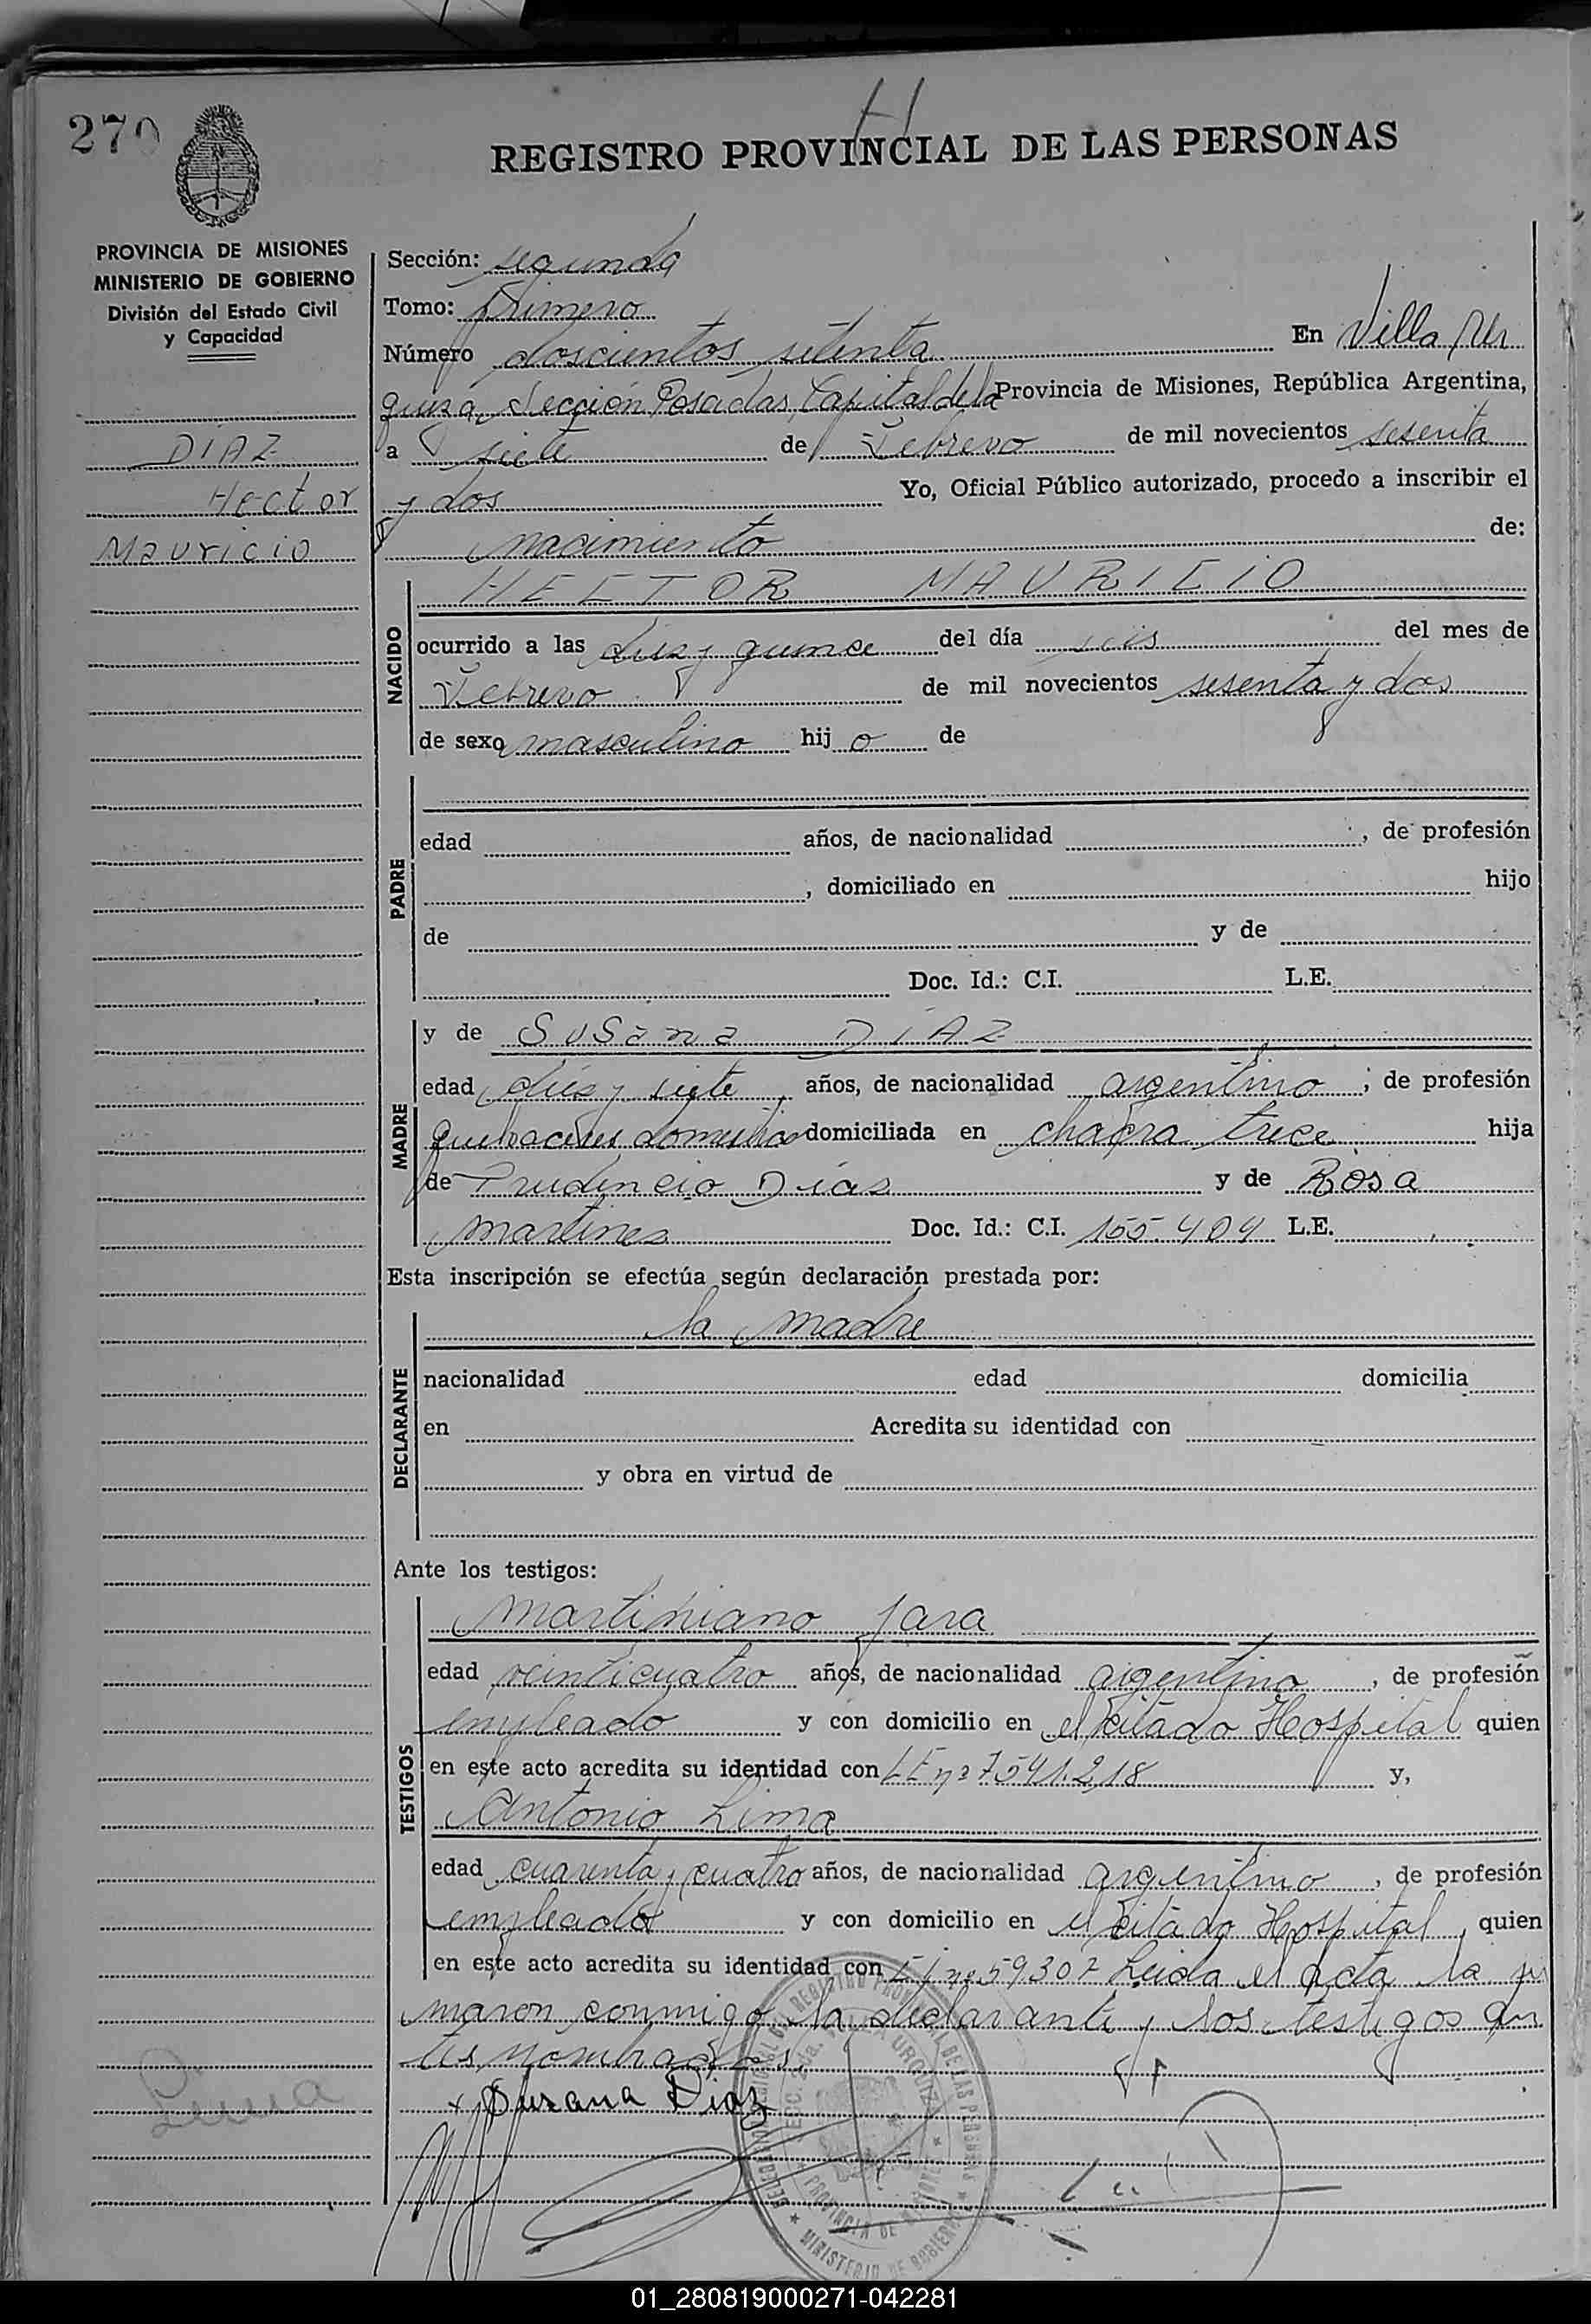 H
270
REGISTRO PROVINCIAL DE LAS PERSONAS
PROVINCIA DE MISIONES
MINISTERIO DE GOBIERNO
División del Estado Civil
y Capacidad
DIAZ
Hector
Mauricio
Sección: segunda
Tomo: Primero
Número doscientos setenta En Villa Ur
quiza, Sección Posadas, Capital de la Provincia de Misiones, República Argentina,
a siete de Febrero de mil novecientos sesenta
y dos Yo, Oficial Público autorizado, procedo a inscribir el
nacimiento de:
NACIDO
HECTOR MAURICIO
ocurrido a las diez y quince del día seis del mes de
Febrero de mil novecientos sesenta y dos
de sexo masculino hij o de
PADRE
edad años, de nacionalidad , de profesión
, domiciliado en hijo
de y de
Doc. Id.: C.I. L.E.
MADRE
y de Susana DIAZ
edad diez y siete años, de nacionalidad argentino ; de profesión
quehaceres domesticos domiciliada en chacra trece hija
de Prudencio Dias y de Rosa
Martines Doc. Id.: C.I. 155.404 L.E.
Esta inscripción se efectúa según declaración prestada por:
DECLARANTE
la madre
nacionalidad edad domicilia
en Acredita su identidad con
y obra en virtud de
Ante los testigos:
TESTIGOS
Martiniano Jara
edad veinticuatro años, de nacionalidad argentino , de profesión
empleado y con domicilio en el citado Hospital quien
en este acto acredita su identidad con LE nº 7541.218 y,
Antonio Lima
edad cuarenta y cuatro años, de nacionalidad argentino , de profesión
empleado y con domicilio en el citado Hospital, quien
en este acto acredita su identidad con nº 59307 Leida el acta la fir
maron conmigo la declarante y los testigos an
tes nombrados.
Susana Diaz
01_280819000271-042281